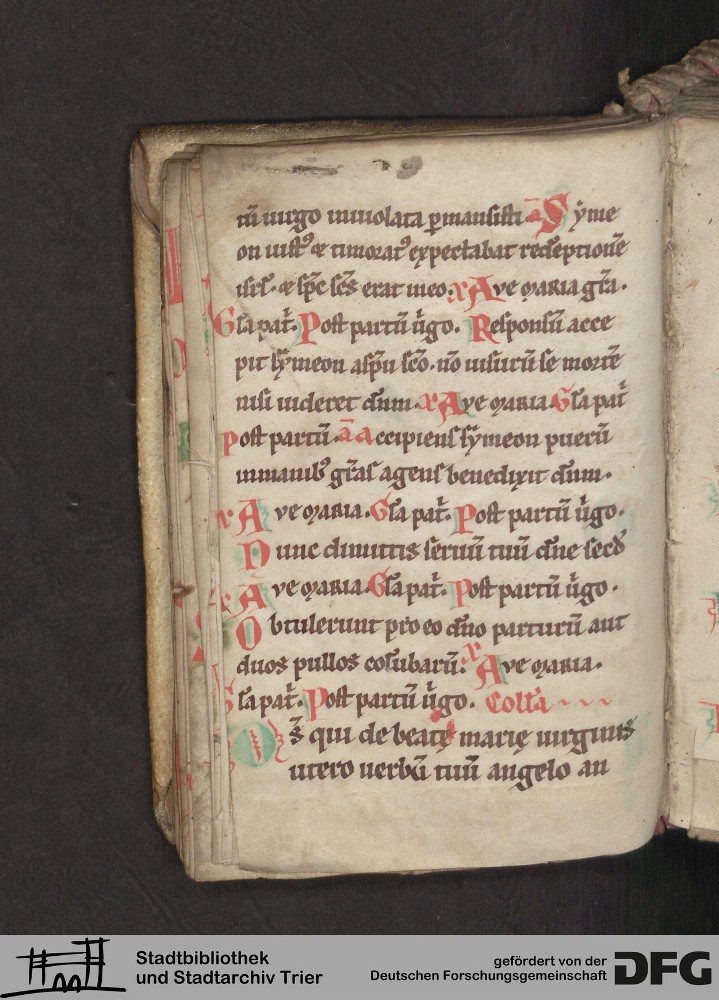 tū uirgo inuiolata ꝑmansisti ā Syme
on iust᷒ ⁊ timorat᷒ expectabat redēptionē
isrl. ⁊ spc̄ sc̄s erat in eo. x Ave maria gr̄a.
Gl̄a pat̄. Post partū ūgo. Responsū acce
pit symeon a spū scō. nō uisurū se mortē
nisi uideret dn̄m. x Ave maria Gl̄a pat̄
Post partū. ā Accipiens symeon puerū
in manib᷒ gr̄as agens benedixit dn̄m.
x Ave maria. Gl̄a pat̄. Post partū ūgo.
Nunc dimittis seruū tuū dn̄e secd̄
x Ave maria. Gl̄a pat̄. Post partū ūgo.
Obtulerunt pro eo dn̄o parturū aut
duos pullos colubarū. x Ave maria.
Gl̄a pat̄. Post partū ūgo. Coll̄a
Ds̄ qui de beatę marię uirginis
utero uerbū tuū angelo an
Stadtbibliothek
und Stadtarchiv Trier
gefördert von der
Deutschen Forschungsgemeinschaft
DFG